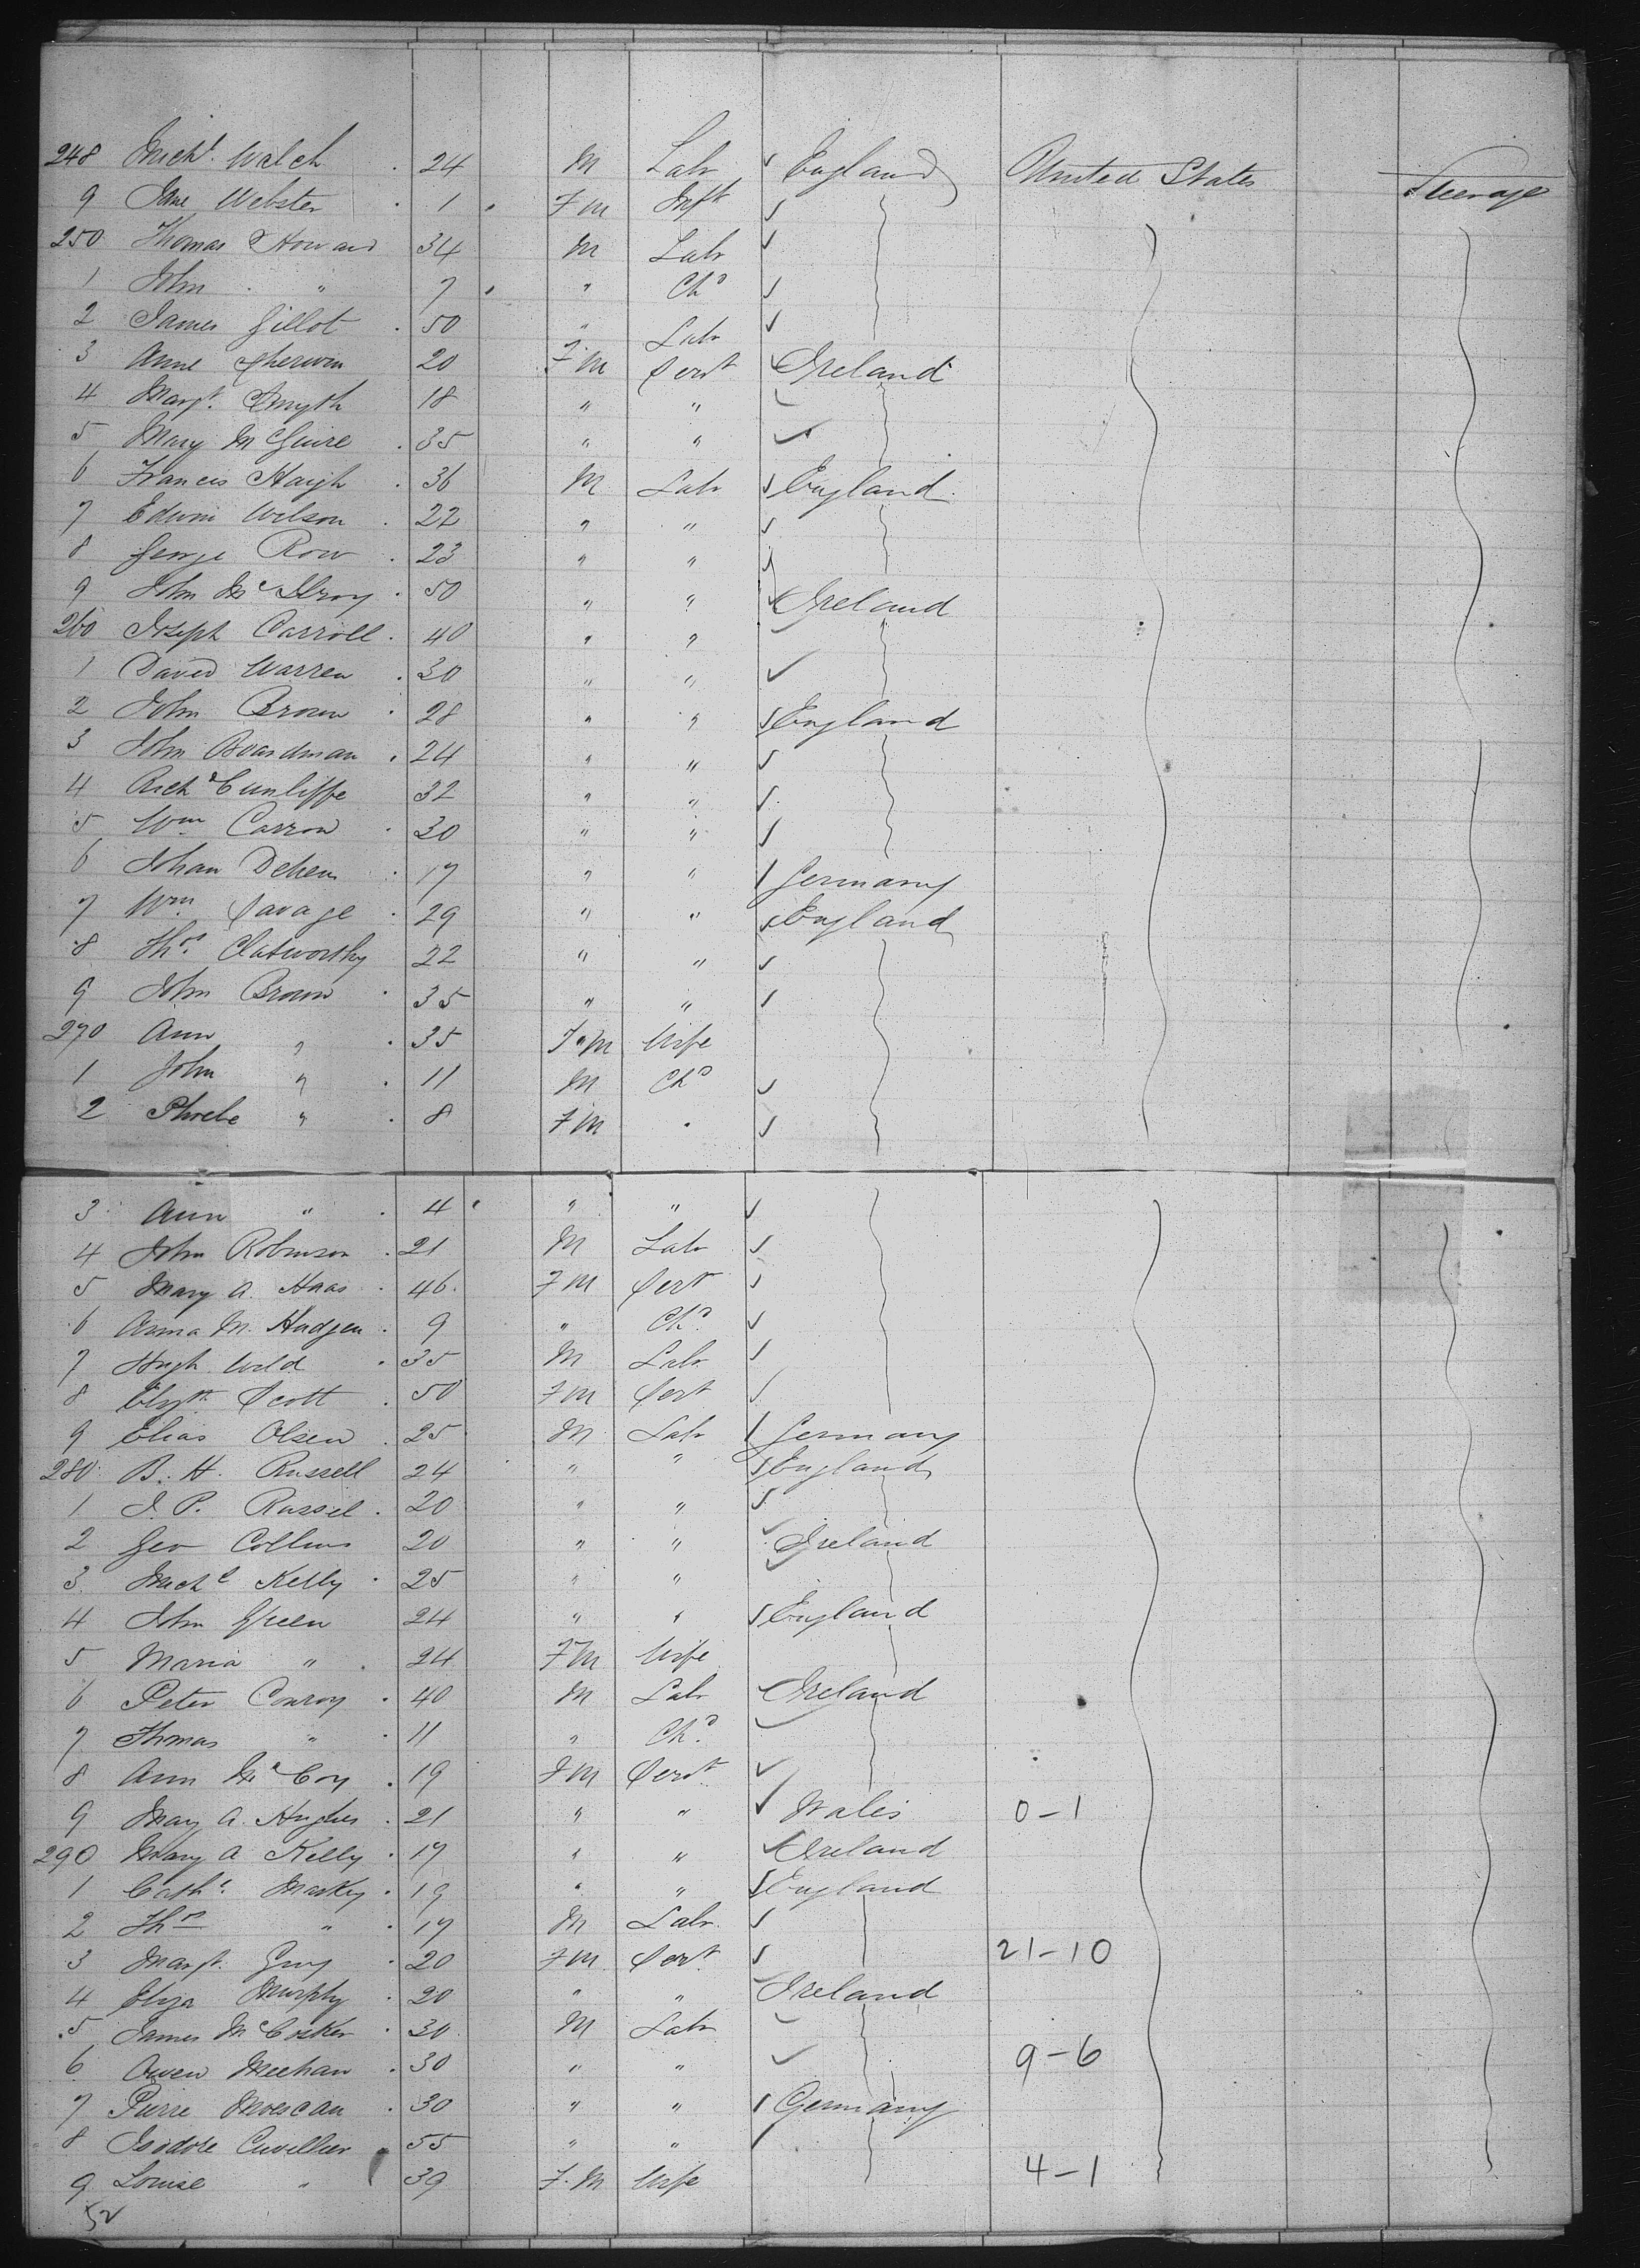 248 Mich.l Walch . 24 M Labr ✓ England United States Steerage
9 Jane Webster . 1 . Fm Inft ✓
250 Thomas Howard 34 M Labr ✓
1 John . " 7 . " Chd ✓
2 James Gillot . 50 " Labr ✓
3 Anne Sherwin 20 Fm Servt ✓ Ireland
4 Margt. Smyth 18 " " ✓
5 Mary McGuire . 35 " " ✓
6 Francis Haigh . 36 M Labr ✓ England
7 Edwin Wilson . 22 " " ✓
8 George Row . 23 " " ✓
9 John McIlroy . 50 " " ✓ Ireland
260 Joseph Carroll . 40 " " ✓
1 David Warren . 30 " " ✓
2 John Brown . 28 " " ✓ England
3 John Boardman . 24 " " ✓
4 Richd Cunliffe 32 " " ✓
5 Wm Carron . 30 " " ✓
6 Johan . 17 " " / Germany
7 Wm Savage . 29 " " ✓ England
8 Thos Clatworthy 22 " " ✓
9 John Brown . 35 " " ✓
270 Ann " . 35 F"m Wife
1 John " . 11 M Chd ✓
2 Phoebe " . 8 Fm . ✓
3 Ann " . 4 . " " ✓
4 John Robinson . 21 M Labr ✓
5 Mary A. Haas . 46 Fm Servt ✓
6 Anna M. Hudgen . 9 " Chd ✓
7 Hugh Wild . 35 M Labr ✓
8 Elizth Scott . 50 Fm Servt ✓
9 Elias Olsen . 25 M Labr / Germany
280 B. H. Russell 24 " " ✓ England
1 J. P. Russel . 20 " " ✓
2 Geo Collins 20 " " ✓ Ireland
3 Michl Kelly . 25 " " ✓
4 John Green 24 " " ✓ England
5 Maria " . 24 Fm Wife
6 Peter Conroy . 40 M Labr ✓ Ireland
7 Thomas " . 11 " Chd. ✓
8 Ann McCoy . 19 Fm Servt ✓
9 Mary A. Hughes . 21 " " ✓ Wales 0-1
290 Mary A Kelly . 17 " " ✓ Ireland
1 Cathe. Markey . 19 " " ✓ England
2 Thos " . 17 M Labr. ✓
3 Margt. Guy . 20 Fm Servt ✓ 21-10
4 Eliza Murphy . 20 " " ✓ Ireland
5 James McCosker . 30 M Labr ✓
6 Owen Meehan . 30 " " ✓ 9-6
7 Pierre . 30 " " / Germany
8 Isidore Cuvillier . 55 " " /
9 Louise " 39 F.M Wife 4-1
52